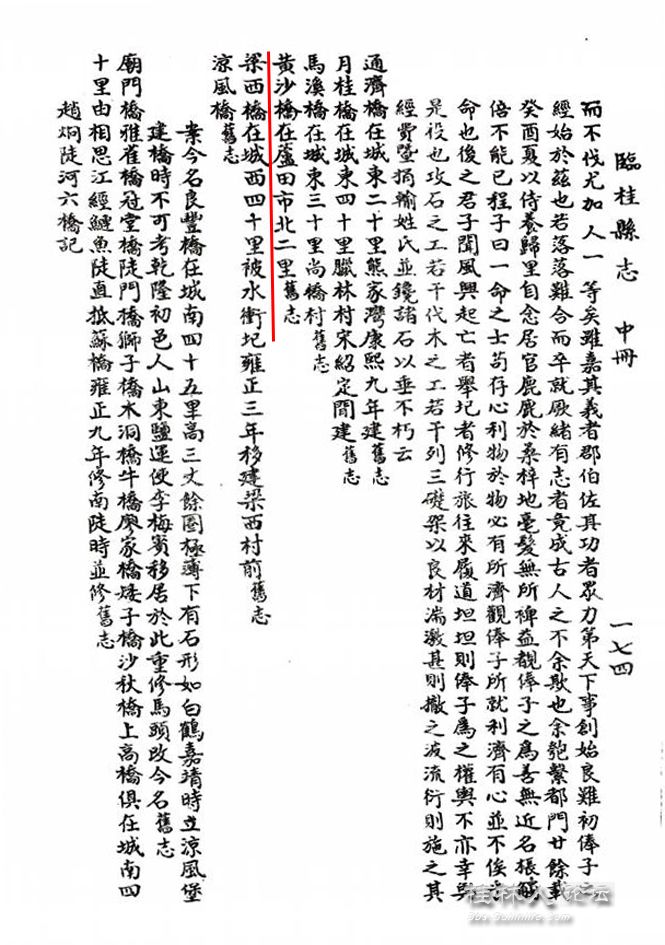 臨桂縣志 中冊 一七四
而不伐尤加人一等矣雖嘉其義者郡伯佐其功者眾力第天下事創始良難初俸子之
經始於茲也若落落難合而卒就厥緒有志者竟成古人之不余欺也余匏繫都門廿餘載
癸酉夏以侍養歸里自念居官鹿鹿於桑梓地毫髮無所裨益覩俸子之為善無近名振觖
倍不能已程子曰一命之士苟存心利物於物必有所濟觀俸子所就利濟有心並不俟
命也後之君子聞風興起亡者舉圮者修行旅往來履道坦坦則俸子為之權輿不亦幸與
是役也攻石之工若干伐木之工若干列三礎架以良材湍激甚則撤之波流衍則施之其
經費暨捐輸姓氏並鐫諸石以垂不朽云
通濟橋在城東二十里熊家灣康熙九年建舊志
月桂橋在城東四十里臘林村宋紹定間建舊志
馬溪橋在城東三十里尚橋村舊志
黃沙橋在蘆田市北二里舊志
梁西橋在城西四十里被水衝圮雍正三年移建梁西村前舊志
涼風橋舊志
案今名良豐橋在城南四十五里高三丈餘圈極薄下有石形如白鶴嘉靖時立涼風堡
建橋時不可考乾隆初邑人山東鹽運使李梅賓移居於此重修馬頭改今名舊志
廟門橋雅雀橋冠堂橋陡門橋獅子橋木洞橋牛橋廖家橋矮子橋沙秋橋上高橋俱在城南四
十里由相思江經鰱魚陡直抵蘇橋雍正九年修南陡時並修舊志
趙炯陡河六橋記
桂林人论坛